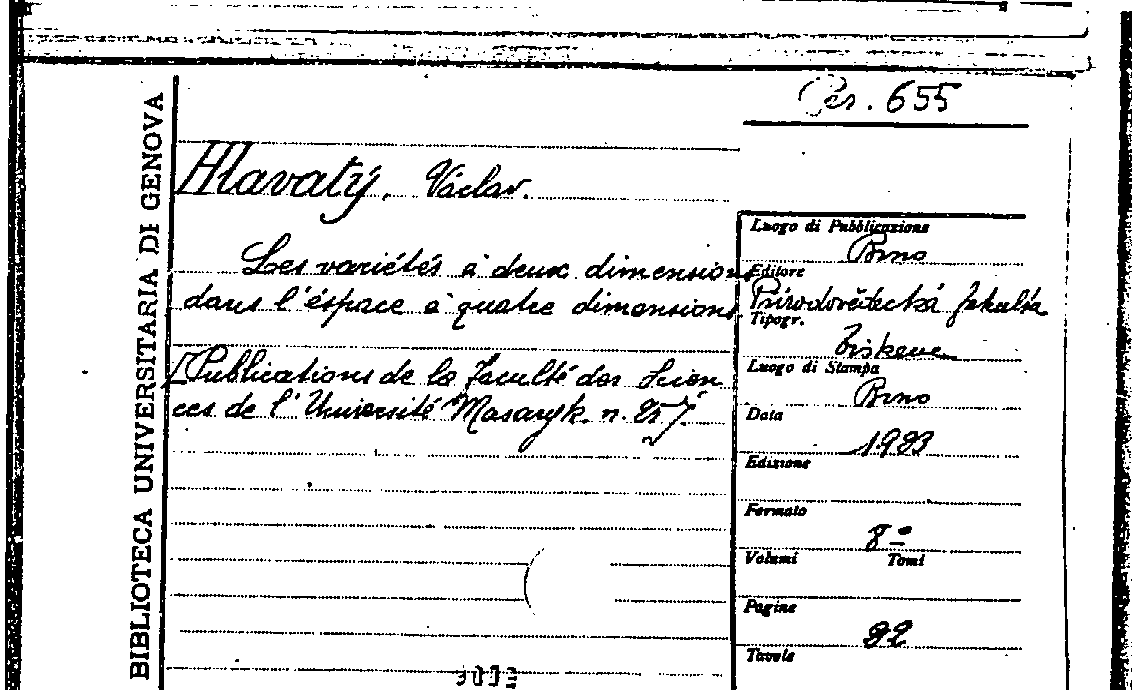 Per. 655
BIBLIOTECA UNIVERSITARIA DI GENOVA
Hlavatý, Václav.
Les variétés à deux dimensions
dans l'éspace à quatre dimensions.
[Publications de la Faculté des Scien
ces de l'Université Masaryk. n.
Luogo di Pubblicazione
Brno
Editore
Přírodovědecká fakulta
Tipogr.
Luogo di Stampa
Brno
Data
1933
Edizione
Formato
8º
Volumi Tomi
Pagine
Tavole